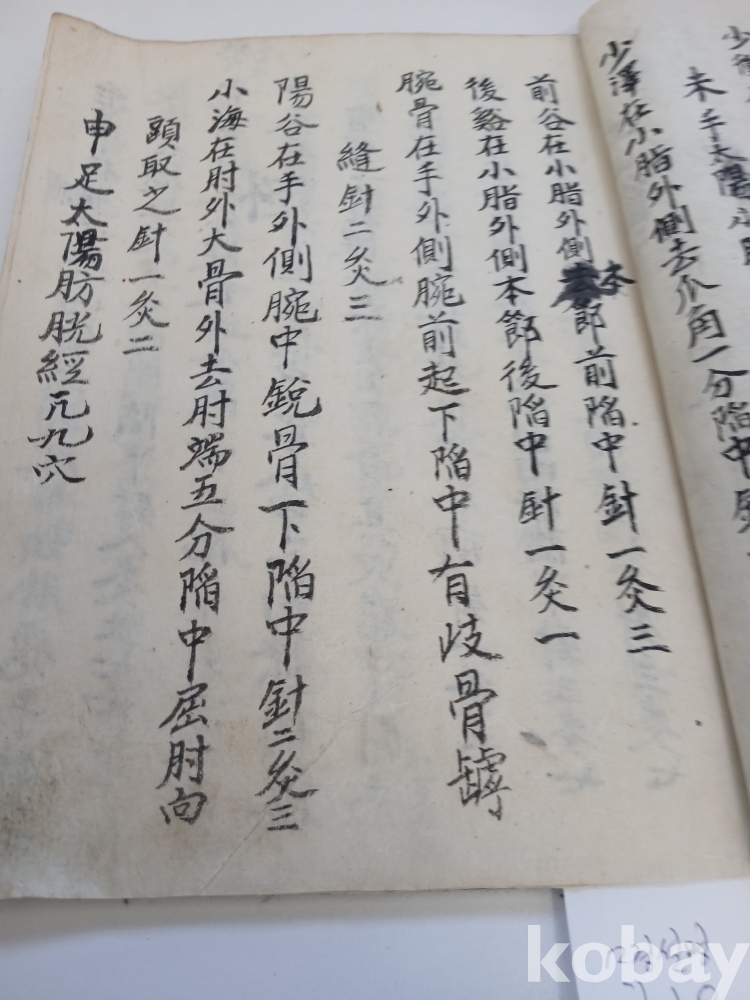 未手太陽小
少澤在小脂外側去爪角一分陷中
前谷在小脂外側本節前陷中針一灸三
後谿在小脂外側本節後陷中針一灸一
腕骨在手外側腕前起下陷中有歧骨罅
縫針二灸三
陽谷在手外側腕中銳骨下陷中針二灸三
小海在肘外大骨外去肘端五分陷中屈肘向
頭取之針一灸二
申足太陽肪胱經凡九穴
kobay